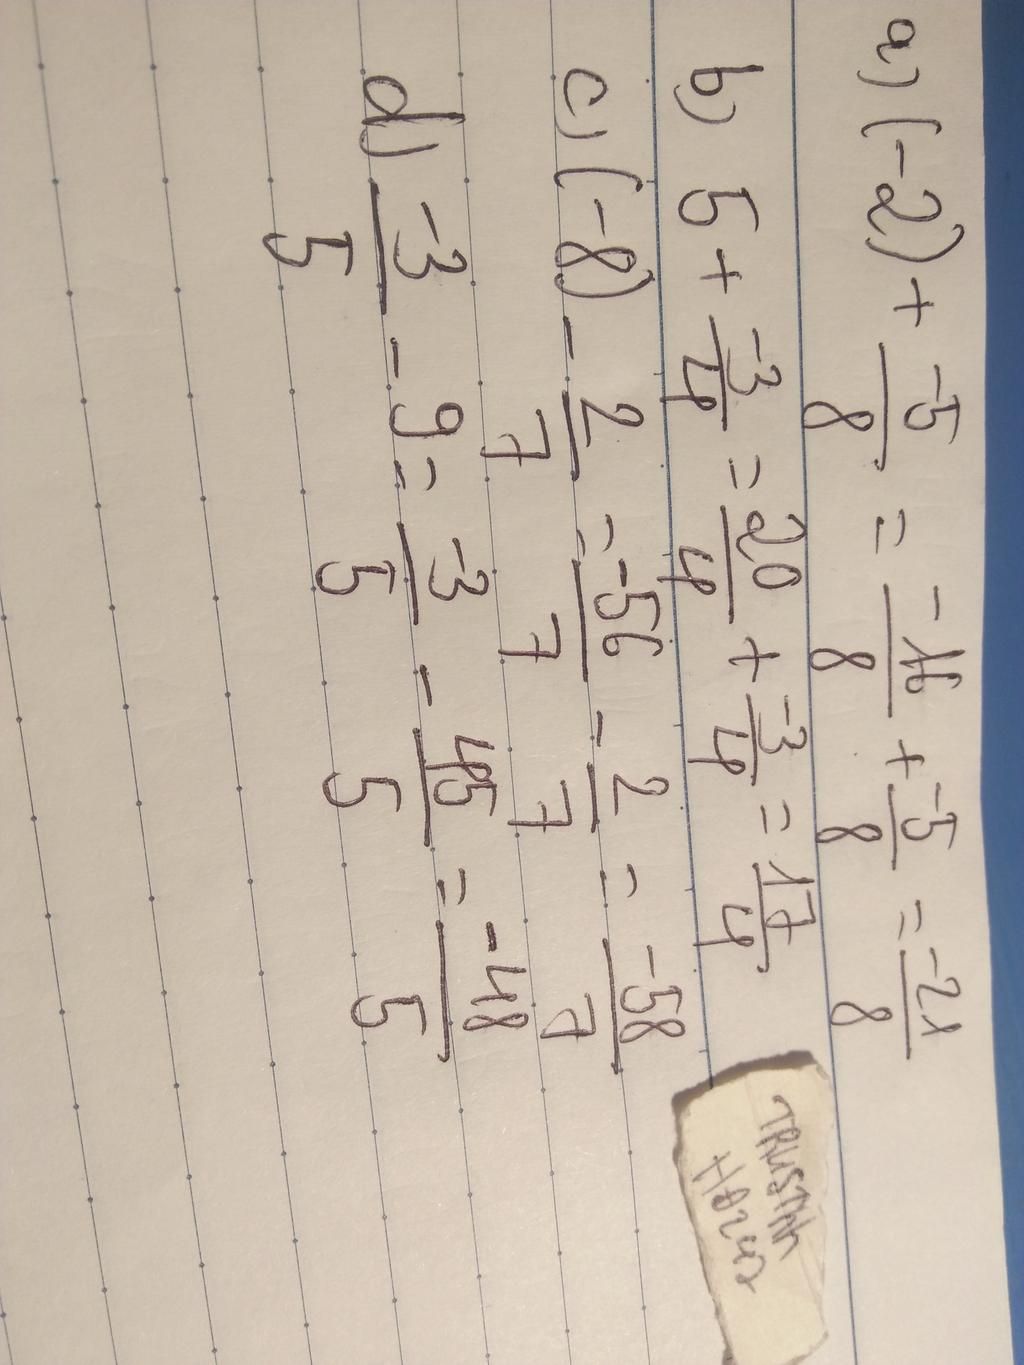 a) (-2) + -5/8 = -16/8 + -5/8 = -21/8
b) 5 + -3/4 = 20/4 + -3/4 = 17/4
c) (-8) - 2/7 = -56/7 - 2/7 = -58/7
d) -3/5 - 9 = -3/5 - 45/5 = -48/5